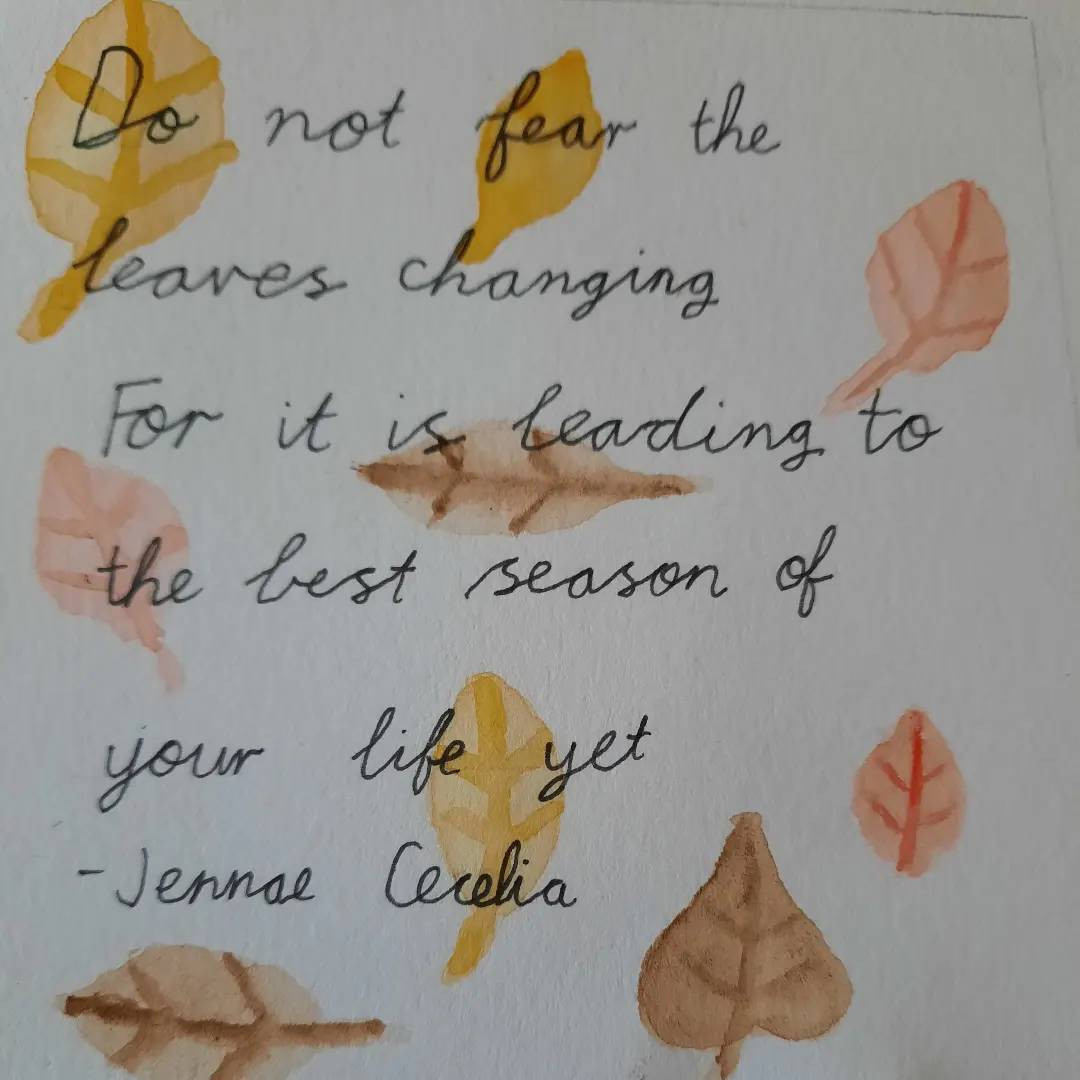 Do not fear the
leaves changing
For it is leading to
the best season of
your life yet
-Jennae Cecelia